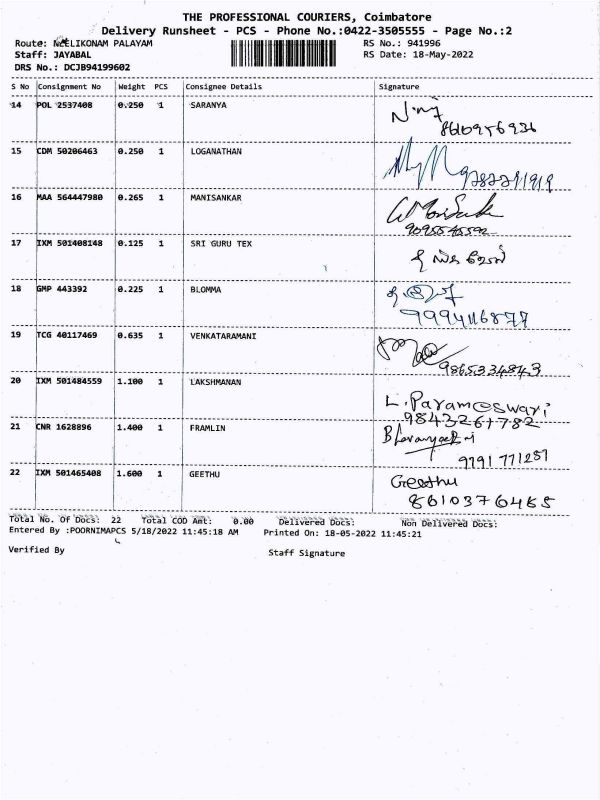 THE PROFESSIONAL COURIERS, Coimbatore
Delivery Runsheet - PCS - Phone No.:0422-3505555 - Page No.:2
Route: NEELIKONAM PALAYAM RS No.: 941996
Staff: JAYABAL RS Date: 18-May-2022
DRS No.: DCJB94199602
S No Consignment No Weight PCS Consignee Details Signature
14 POL 2537408 0.250 1 SARANYA
8610956936
15 CDM 50206463 0.250 1 LOGANATHAN
16 MAA 564447980 0.265 1 MANISANKAR
17 IXM 501408148 0.125 1 SRI GURU TEX
18 GMP 443392 0.225 1 BLOMMA
9994116877
19 TCG 40117469 0.635 1 VENKATARAMANI
9865334843
20 IXM 501484559 1.100 1 LAKSHMANAN L. Parameswari
9843261782
21 CNR 1628896 1.400 1 FRAMLIN
9191771257
22 IXM 501465408 1.600 1 GEETHU Geethu
8610376465
Total No. Of Docs: 22 Total COD Amt: 0.00 Delivered Docs: Non Delivered Docs:
Entered By :POORNIMAPCS 5/18/2022 11:45:18 AM Printed On: 18-05-2022 11:45:21
Verified By Staff Signature